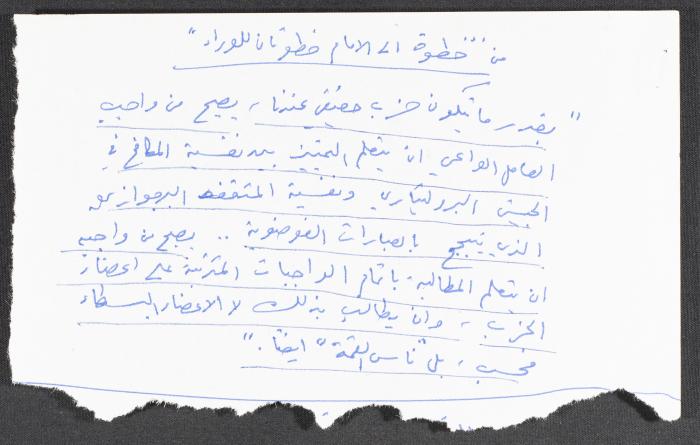 من "خطوة الى الامام خطوتان للوراء"
"بقدر ما يتكون حزب حقيقي عندنا، يصبح من واجب
العامل الواعي ان يتعلم التمييز بين نفسية المكافح في
الجيش البروليتاري ونفسية المثقف البرجوازي
الذي يتبجح بالعبارات الفوضوية .. يصبح من واجبه
ان يتعلم المطالبة باتمام الواجبات المترتبة على اعضاء
الحزب، وان يطالب بذلك لا الاعضاء البسطاء
فحسب، بل "ناس القمة" ايضا."